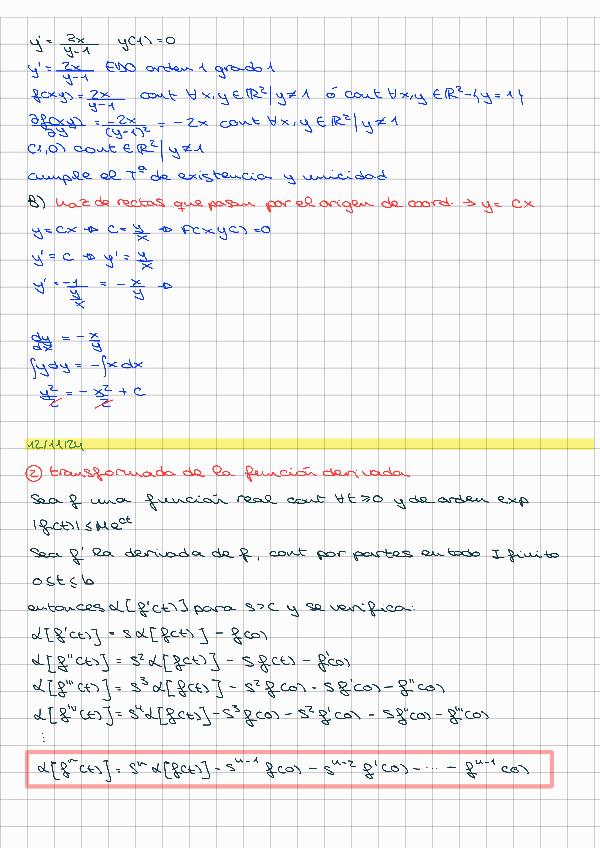 y' = 2x/(y-1)   y(1) = 0
y' = 2x/(y-1)   EDO orden 1 grado 1
f(x,y) = 2x/(y-1)   cont ∀x,y ∈ ℝ² | y≠1   ó cont ∀x,y ∈ ℝ² - {y = 1}
∂f(x,y)/∂y = -2x/(y-1)² = -2x cont ∀x,y ∈ ℝ² | y≠1
(1,0) cont ∈ ℝ² | y≠1
cumple el Tª de existencia y unicidad
B) Haz de rectas que pasan por el origen de coord. → y = Cx
y = Cx ⇒ C = y/x ⇒ F(x y C) = 0
y' = C ⇒ y' = y/x
y' = -1/(y/x) = - x/y ⇒
dy/dx = - x/y
∫y dy = -∫x dx
y²/2 = - x²/2 + C
12/11/24
② transformada de la función derivada
Sea f una función real cont ∀t ≥ 0 y de orden exp
|f(t)| ≤ Me^ct
Sea f' la derivada de f, cont por partes en todo I finito
0 ≤ t ≤ b
entonces α[f'(t)] para s>c y se verifica:
α[f'(t)] = sα[f(t)] - f(0)
α[f''(t)] = s²α[f(t)] - sf(t) - f'(0)
α[f'''(t)] = s³α[f(t)] - s²f(0) - sf'(0) - f''(0)
α[f⁗(t)] = s⁴α[f(t)] - s³f(0) - s²f'(0) - sf''(0) - f'''(0)
⋮
α[fⁿ(t)] = sⁿα[f(t)] - sⁿ⁻¹f(0) - sⁿ⁻²f'(0) - ⋯ - fⁿ⁻¹(0)